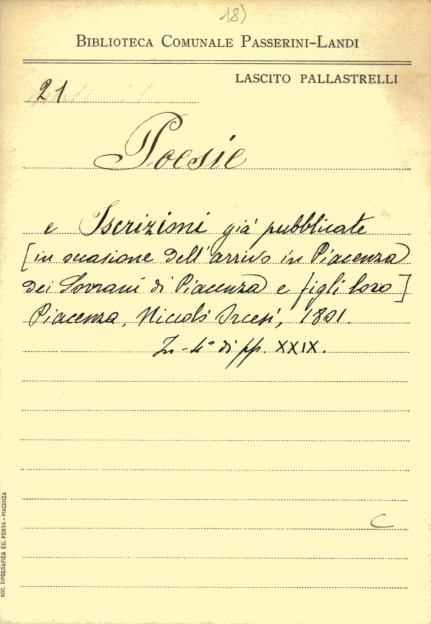 18)
BIBLIOTECA COMUNALE PASSERINI-LANDI
LASCITO PALLASTRELLI
21
Poesie
e Iscrizioni già pubblicate
[in occasione dell'arrivo in Piacenza
dei Sovrani di Piacenza e figli loro]
Piacenza, Niccolò Orcesi, 1821.
In-4° di pp. XXIX.
C
SOC. TIPOGRAFICA ED. PORTA - PIACENZA